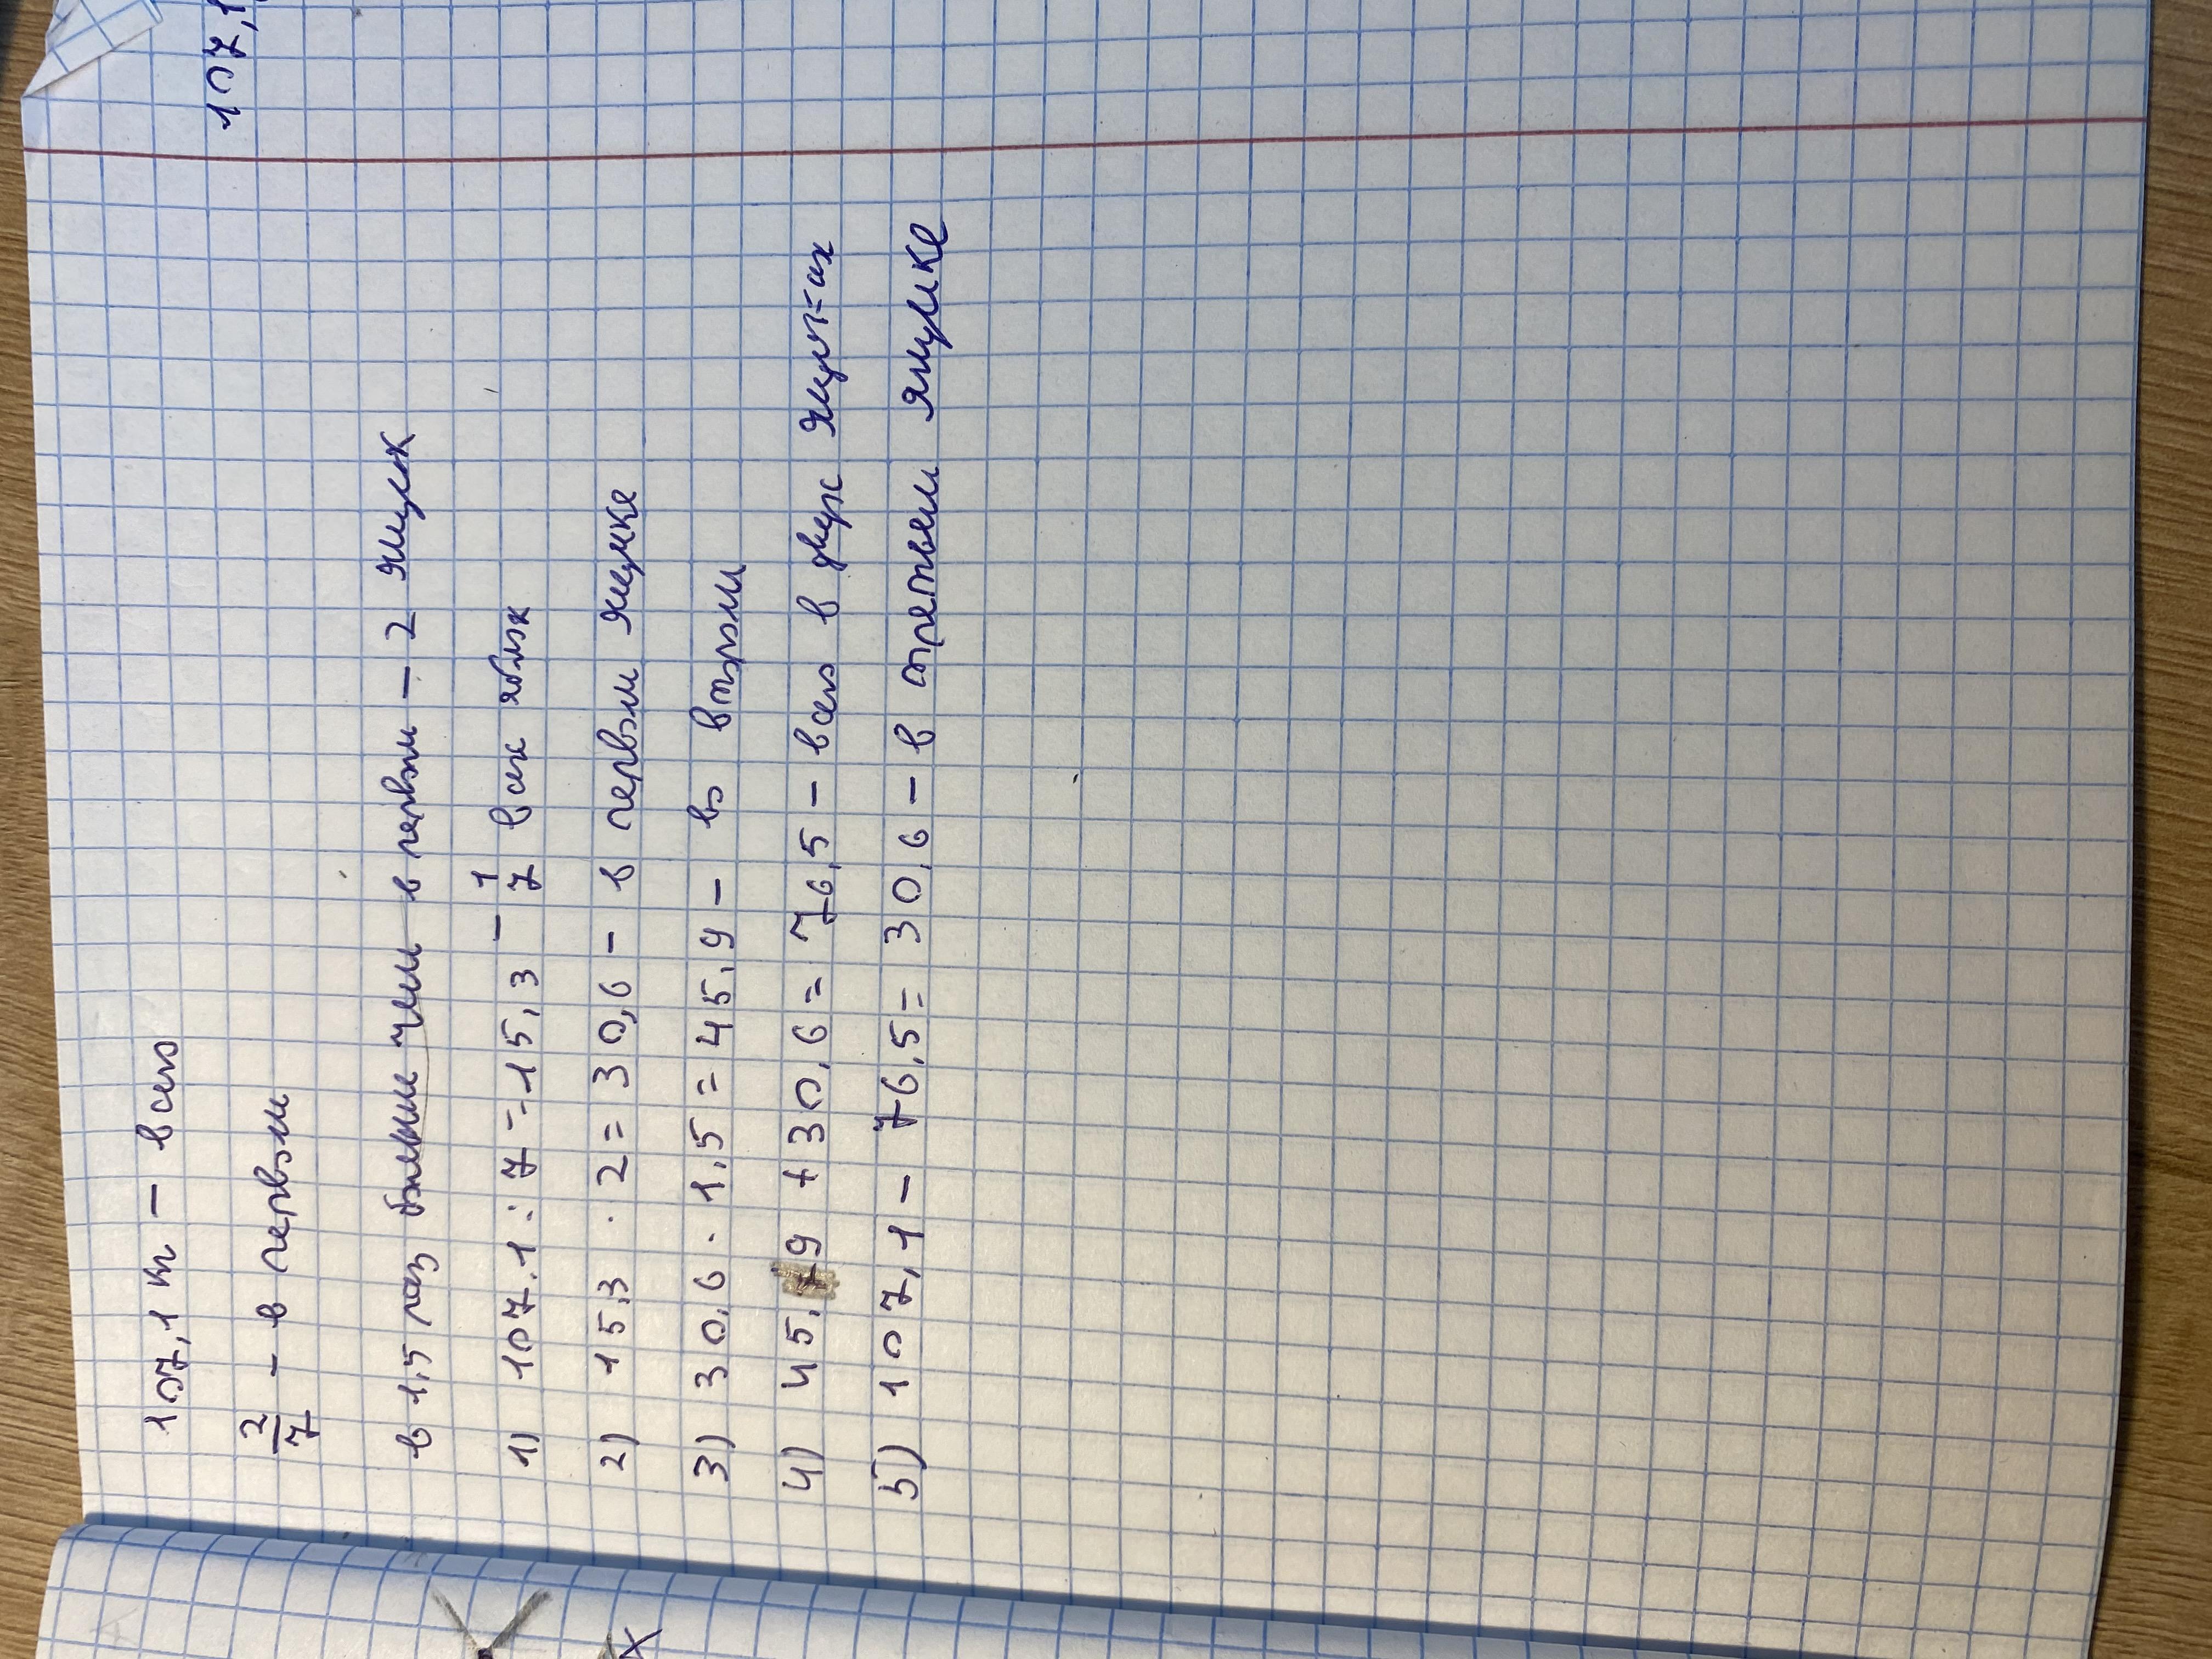 107,1 т - всего
2/7 - в первом
в 1,5 раз больше чем в первом - 2 ящик
1) 107,1 : 7 = 15,3 - 1/7 всех яблок
2) 15,3 · 2 = 30,6 - в первом ящике
3) 30,6 · 1,5 = 45,9 - во втором
4) 45,9 + 30,6 = 76,5 - всего в двух
5) 107,1 - 76,5 = 30,6 - в третьем ящике
107,1
х